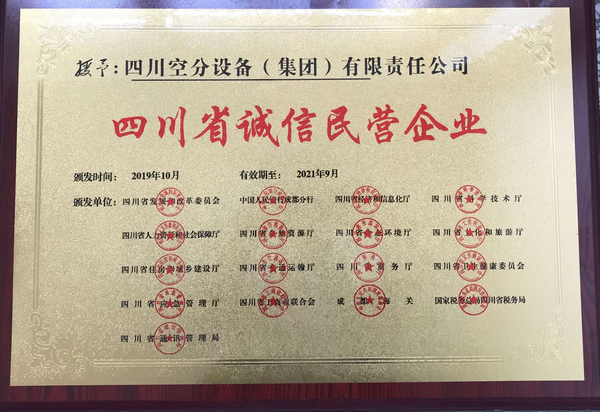 授予：四川空分设备（集团）有限责任公司
四川省诚信民营企业
颁发时间： 2019年10月 有效期至： 2021年9月
颁发单位：四川省发展和改革委员会 中国人民银行成都分行 四川省经济和信息化厅 四川省科学技术厅
四川省人力资源和社会保障厅 四川省自然资源厅 四川省生态环境厅 四川省文化和旅游厅
四川省住房和城乡建设厅 四川省交通运输厅 四川省商务厅 四川省卫生健康委员会
四川省应急管理厅 四川省工商业联合会 成都海关 国家税务总局四川省税务局
四川省通讯管理局